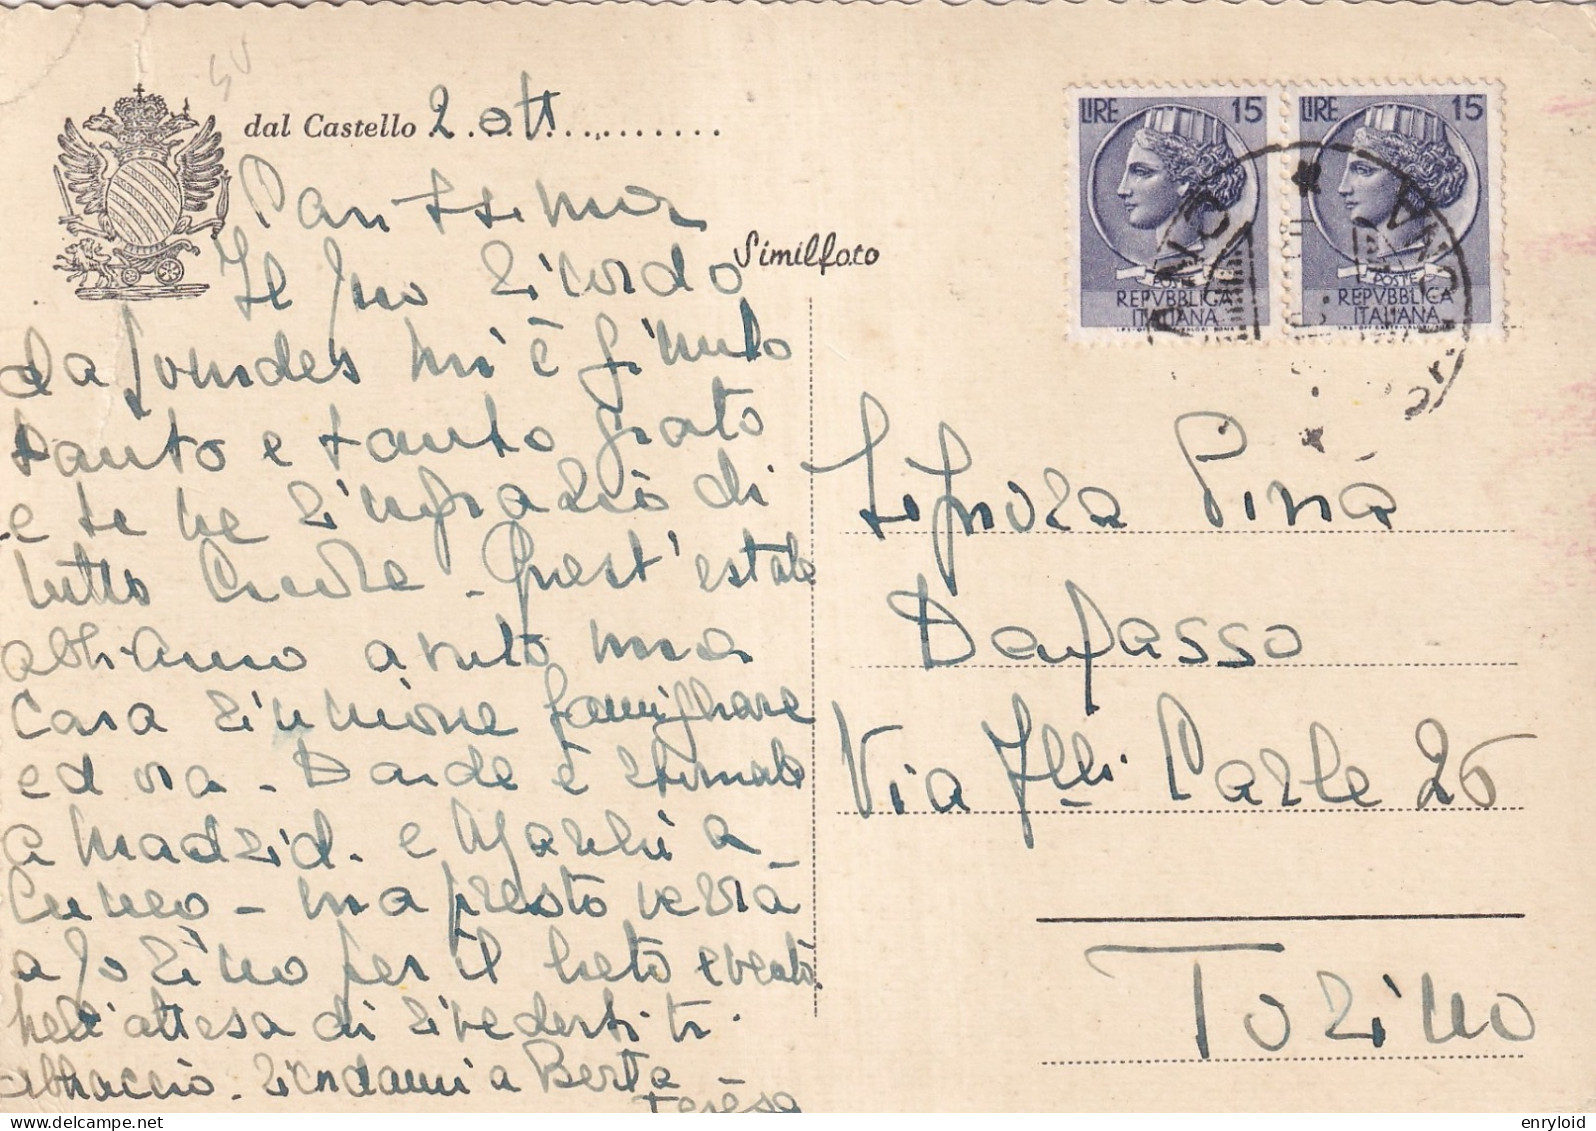 dal Castello 2 ott
Carissima
Il tuo ricordo
Similfoto
da Lourdes mi è giunto
tanto e tanto grato
e te ne ringrazio di
tutto cuore - Quest'estate
abbiamo avuto una
cara riunione famigliare
ed ora - Davide è ritornato
a Madrid. e a
Cuneo - ma presto verrà
a Torino per il lieto evento
nell'attesa di rivederti ti
abbraccio. ricordami a Berta
Teresa
LIRE 15
POSTE
REPVBBLICA
ITALIANA
LIRE 15
POSTE
REPVBBLICA
ITALIANA
Signora Pina
Dapasso
Via Flli Carle 26
Torino
enryloid